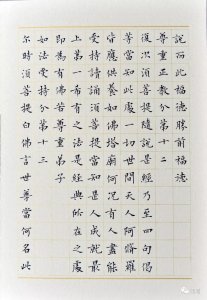 說而此福德勝前福德
尊重正教分第十二
復次須菩提隨說是經乃至四句偈
等當知此處一切世間天人阿修羅
皆應供養如佛塔廟何況有人盡能
受持讀誦須菩提當知是人成就最
上第一希有之法若是經典所在之處
即為有佛若尊重弟子
如法受持分第十三
尔時須菩提白佛言世尊當何名此